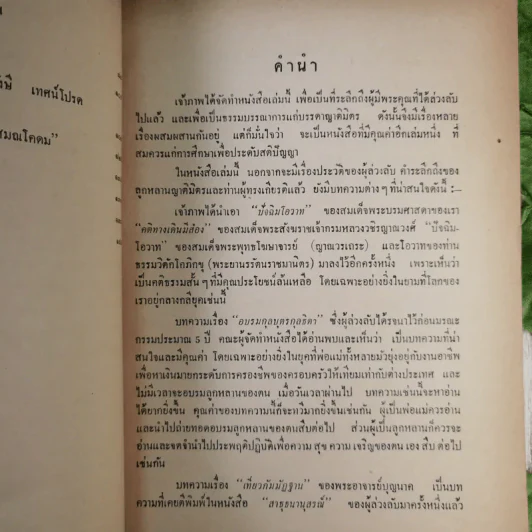 เทศน์โปรด
สมณโคดม"
คำนำ
เจ้าภาพได้จัดทำหนังสือเล่มนี้ เพื่อเป็นที่ระลึกถึงผู้มีพระคุณที่ได้ล่วงลับ
ไปแล้ว และเพื่อเป็นธรรมบรรณาการแก่บรรดาญาติมิตร ดังนั้นจึงมีเรื่องหลาย
เรื่องผสมผสานกันอยู่ แต่ก็มั่นใจว่า จะเป็นหนังสือที่มีคุณค่าอีกเล่มหนึ่ง ที่
สมควรแก่การศึกษาเพื่อประดับสติปัญญา
ในหนังสือเล่มนี้ นอกจากจะมีเรื่องประวัติของผู้ล่วงลับ คำระลึกถึงของ
ลูกหลานญาติมิตรและท่านผู้ทรงเกียรติแล้ว ยังมีบทความต่าง ๆ ที่น่าสนใจดังนี้ :—
เจ้าภาพได้นำเอา "ปัจฉิมโอวาท" ของสมเด็จพระบรมศาสดาของเรา
"คติทางเดินมีสอง" ของสมเด็จพระสังฆราชเจ้ากรมหลวงวชิรญาณวงศ์ "ปัจฉิม-
โอวาท" ของสมเด็จพระพุทธโฆษาจารย์ (ญาณวรเถระ) และโอวาทของท่าน
ธมฺมวิตกฺโกภิกขุ (พระยานรรัตนราชมานิต) มาลงไว้อีกครั้งหนึ่ง เพราะเห็นว่า
เป็นคติธรรมสั้น ๆ ที่มีคุณประโยชน์ล้นเหลือ โดยเฉพาะอย่างยิ่งในยามที่โลกของ
เราอยู่กลางกลียุคเช่นนี้
บทความเรื่อง "อบรมกุลบุตรกุลธิดา" ซึ่งผู้ล่วงลับได้รจนาไว้ก่อนมรณะ
กรรมประมาณ 5 ปี คณะผู้จัดทำหนังสือได้อ่านพบและเห็นว่า เป็นบทความที่น่า
สนใจและมีคุณค่า โดยเฉพาะอย่างยิ่งในยุคที่พ่อแม่ทั้งหลายมัวยุ่งอยู่กับงานอาชีพ
เพื่อหาเงินมายกระดับการครองชีพของครอบครัวให้เทียมเท่ากับต่างประเทศ และ
ไม่มีเวลาจะอบรมลูกหลานของตน เมื่อวันเวลาผ่านไป บทความเช่นนี้จะหาอ่าน
ได้ยากยิ่งขึ้น คุณค่าของบทความนี้ก็จะทวีมากยิ่งขึ้นเช่นกัน ผู้เป็นพ่อแม่ควรอ่าน
และนำไปถ่ายทอดอบรมลูกหลานของตนสืบต่อไป ส่วนผู้เป็นลูกหลานก็ควรจะ
อ่านและจดจำนำไปประพฤติปฏิบัติเพื่อความ สุข ความ เจริญของตน เอง สืบ ต่อไป
เช่นกัน
บทความเรื่อง "เที่ยวกัมมัฏฐาน" ของพระอาจารย์บุญนาค เป็นบท
ความที่เคยตีพิมพ์ในหนังสือ "สาธุธนานุสรณ์" ของผู้ล่วงลับมาครั้งหนึ่งแล้ว